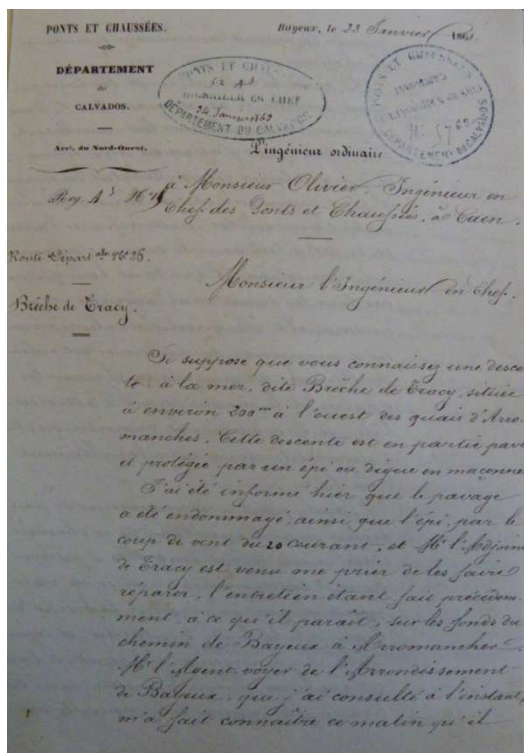 PONTS ET CHAUSSÉES.
DÉPARTEMENT
du
CALVADOS.
Arrt. du Nord-Ouest.
Bayeux, le 23 Janvier 1863.
PONTS ET CHAUSSÉES
INGÉNIEUR EN CHEF
24 Janvier 1863
DÉPARTEMENT DU CALVADOS
PONTS ET CHAUSSÉES
DÉPARTEMENT DU CALVADOS
L'ingénieur ordinaire
à Monsieur Olivier, Ingénieur en
Chef des Ponts et Chaussées, à Caen.
Route Départale No 26.
Brèche de Tracy.
Monsieur l'Ingénieur en Chef.
Je suppose que vous connaissez une descen
te à la mer, dite Brèche de Tracy, située
à environ 200m à l'ouest des quais d'Arro
manches. Cette descente est en partie pavé
et protégée par un épi ou digue en maçonne
J'ai été informé hier que le pavage
a été endommagé, ainsi que l'épi, par le
coup de vent du 20 courant, et Mr l'Adjoin
de Tracy est venu me prier de les faire
réparer, l'entretien étant fait précédem-
ment, à ce qu'il paraît, sur les fonds du
chemin de Bayeux à Arromanches.
Mr l'Agent voyer de l'Arrondissement
de Bayeux, que j'ai consulté à l'instant,
m'a fait connaître ce matin qu'il